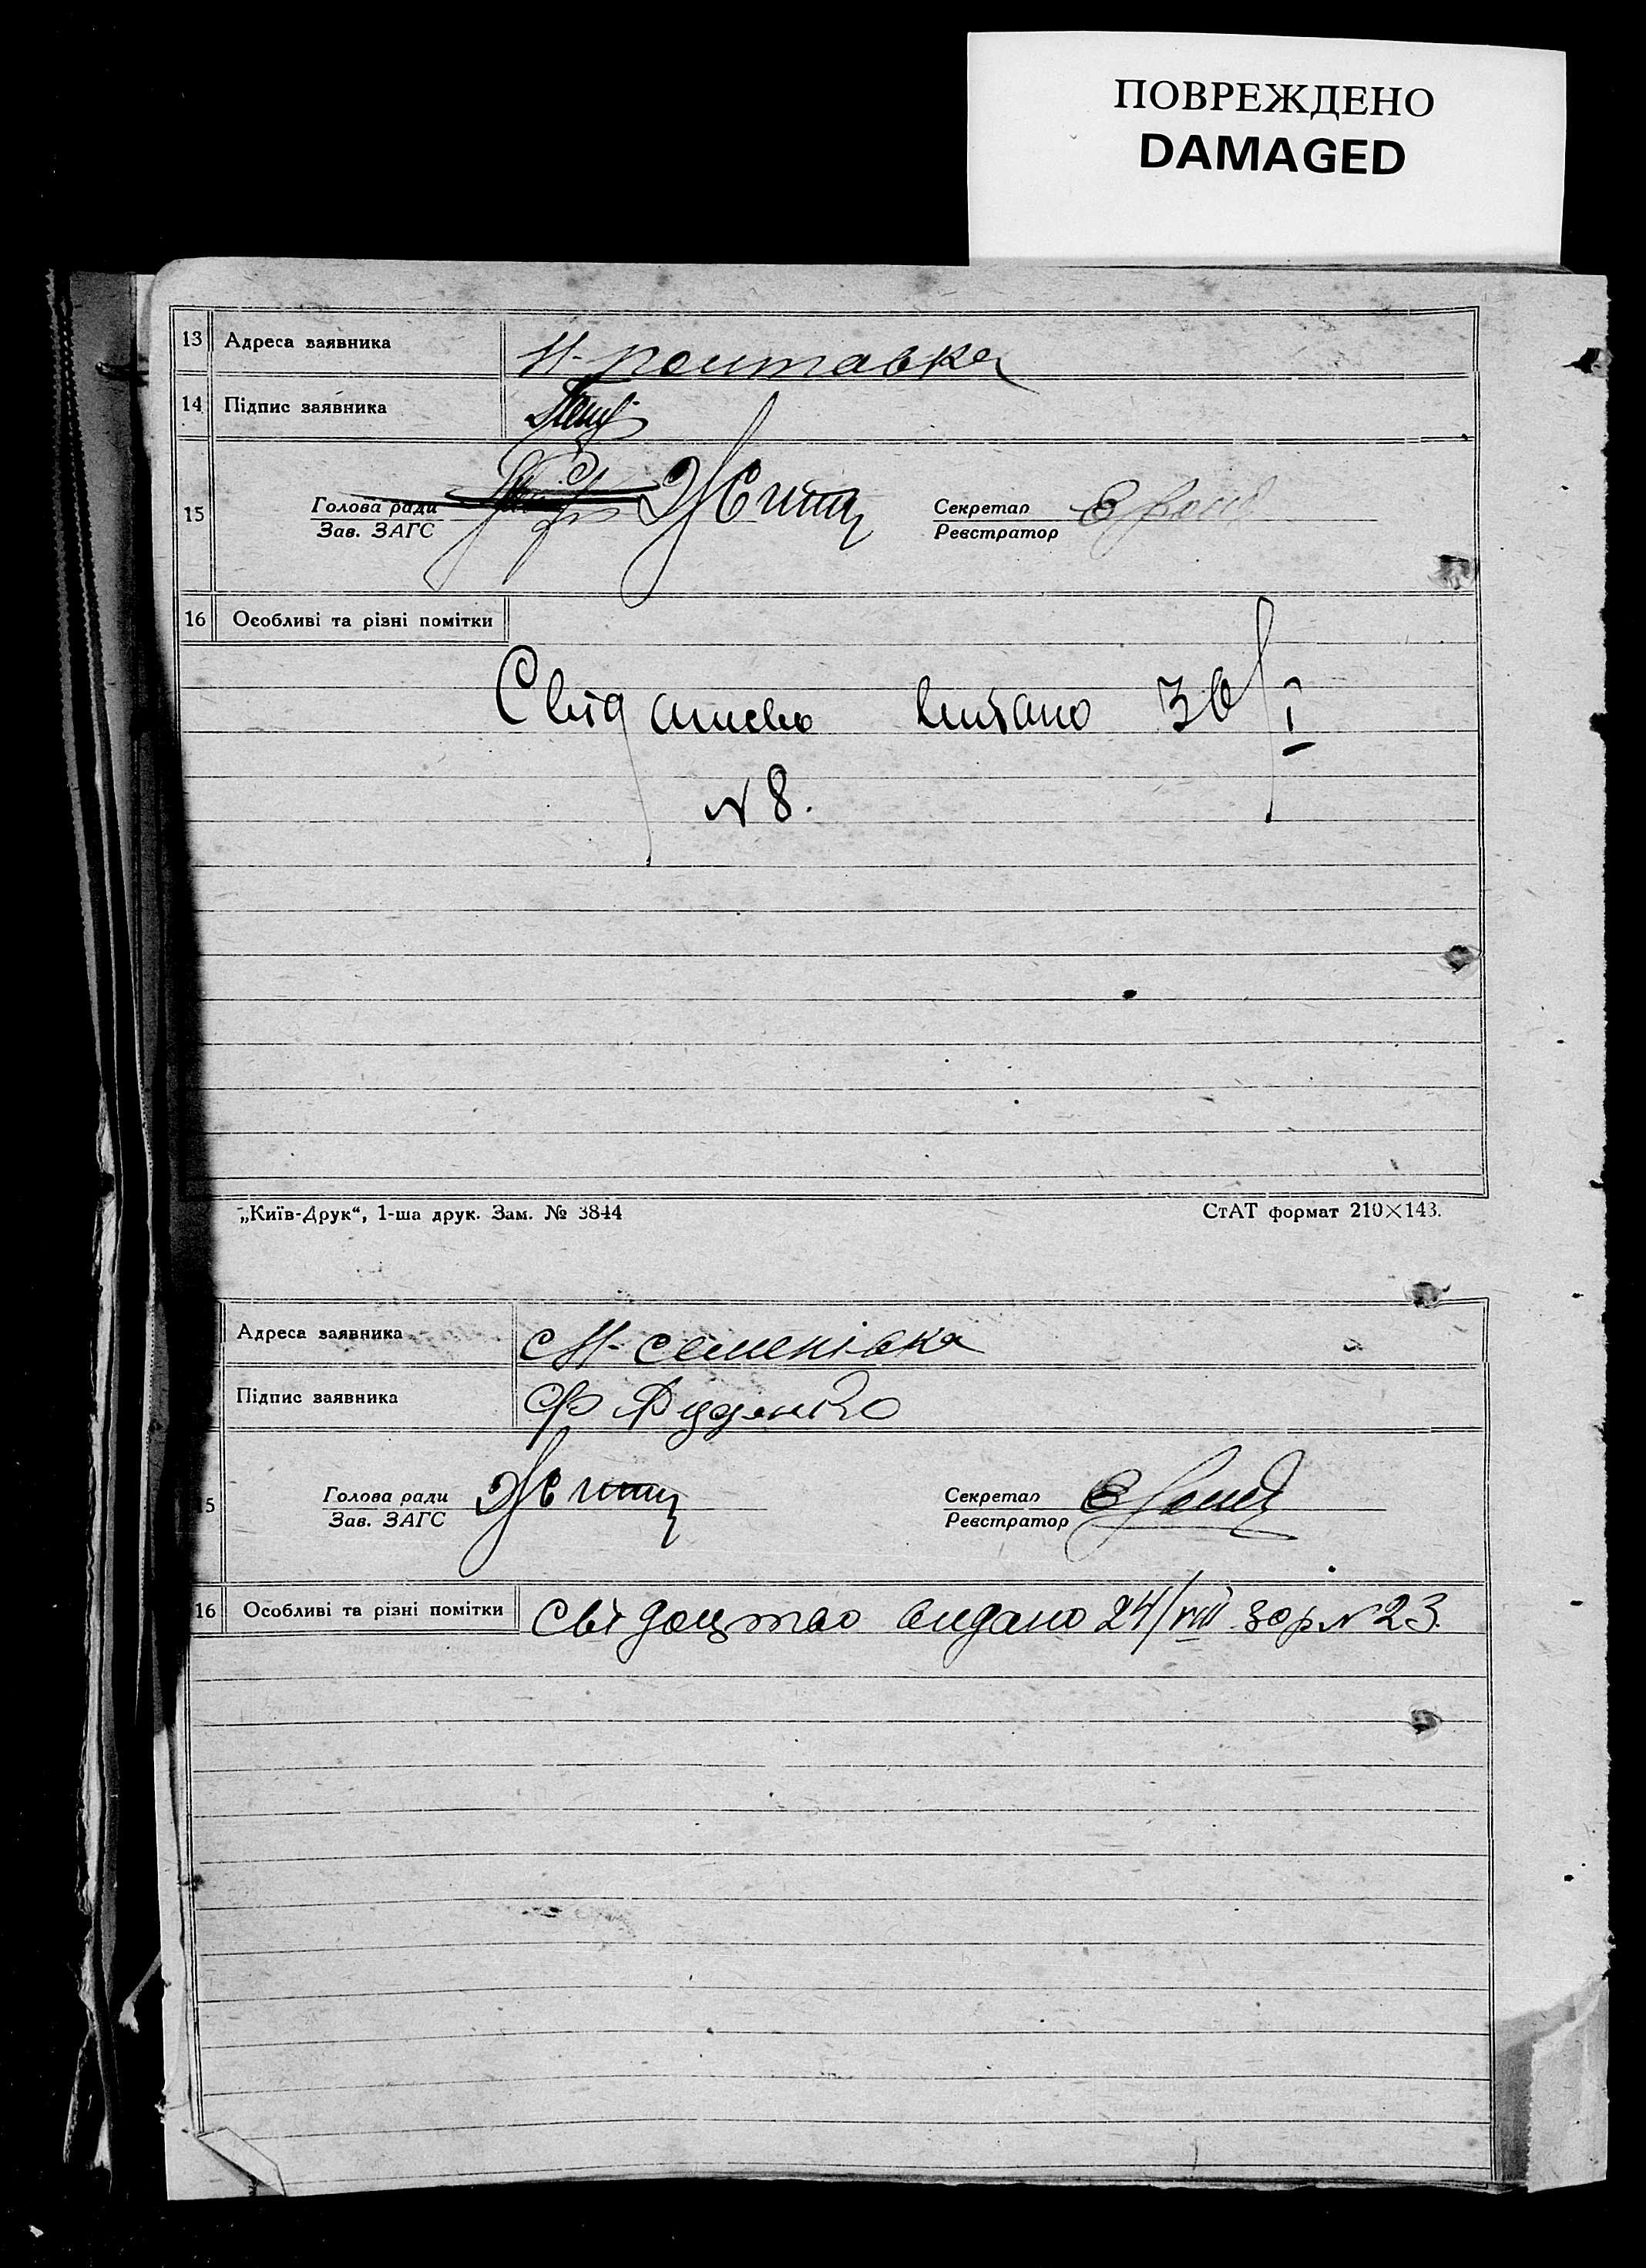 ПОВРЕЖДЕНО
DAMAGED
13 Адреса заявника Н-полтавка
14 Підпис заявника
15 Голова ради Секретар
Зав. ЗАГС Реєстратор
16 Особливі та різні помітки
Свідоцтво видано 30/I
N 8.
„Київ-Друк“, 1-ша друк. Зам. № 3844 СтАТ формат 210×143.
Адреса заявника с Н-семенівка
Підпис заявника Ф Руденко
15 Голова ради Секретар
Зав. ЗАГС Реєстратор
16 Особливі та різні помітки Свідоцтво видано 24/VIII 30р N 23.